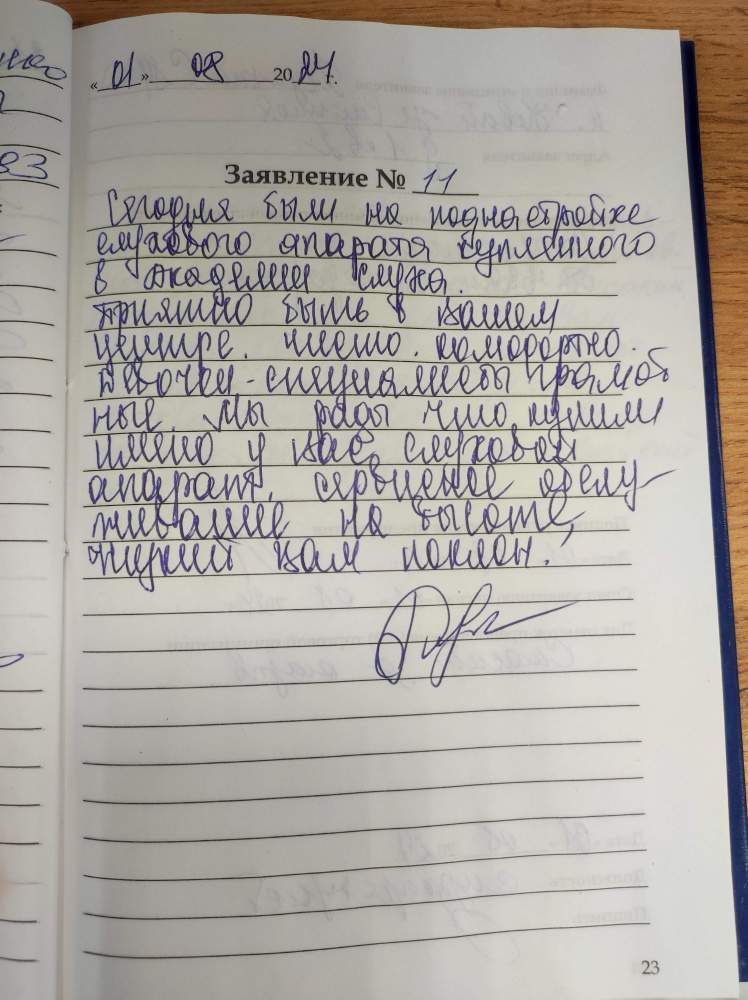 «01» 08 2024г.
Заявление № 11
Сегодня были на поднастройке
слухового апарата купленного
в Академии слуха.
приятно быть в вашем
центре. чисто. комофортно.
девочки-специалисты грамот
ные. Мы рады что купили
имено у вас слуховой
апарат. сервисное обслу-
живание на высоте,
низкий вам поклон!
23